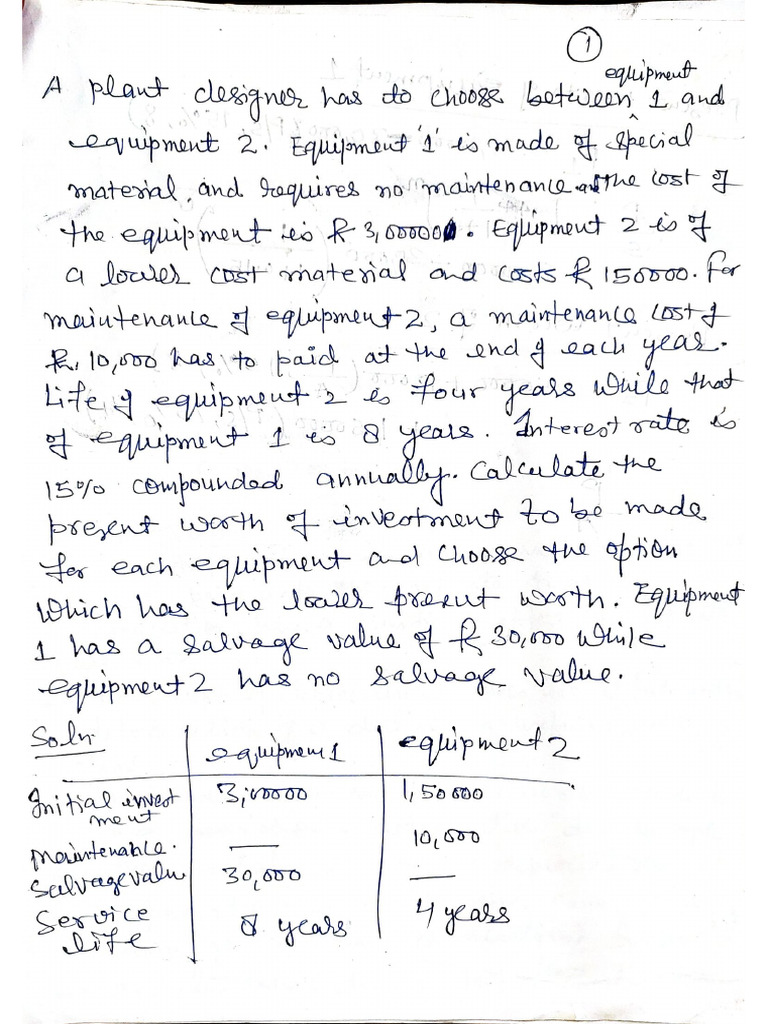 1
equipment
A plant designer has to choose between ^ 1 and
equipment 2. Equipment '1' is made of special
material, and requires no maintenance and the cost of
the equipment is ₨ 3,00000. Equipment 2 is of
a lower cost material and costs ₨ 150000. For
maintenance of equipment 2, a maintenance cost of
₨. 10,000 has to paid at the end of each year.
Life of equipment 2 is four years while that
of equipment 1 is 8 years. Interest rate is
15% compounded annually. Calculate the
present worth of investment to be made
for each equipment and choose the option
which has the lower present worth. Equipment
1 has a salvage value of ₨ 30,000 while
equipment 2 has no salvage value.
Soln. equipment 1 equipment 2
Initial invest 3,00000 1,50000
ment
Maintenance. — 10,000
Salvage valu 30,000 —
Service 8 years 4 years
life